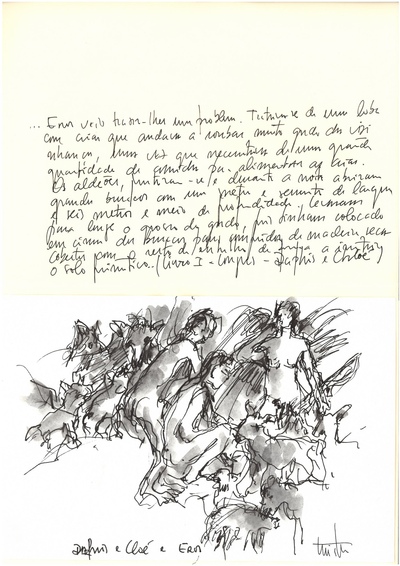 ... Eros veio trazer-lhes um problema. Tratava-se de uma loba
com crias que andava a roubar muito gado da vizi
nhança, uma vez que necessitava de uma grande
quantidade de comida para alimentar as crias.
Os aldeões, juntaram-se e durante a noite abriram
grandes buracos com um metro e de largura
e seis metros e meio de profundidade. Levaram
para longe o grosso da, pois tinham colocado
em cima dos buracos paus compridos de madeira seca
cobertos com o resto da de a
o solo primitivo. (Livro I - Longus - Daphnis e Chloé)
Daphnis e Cloé e Eros